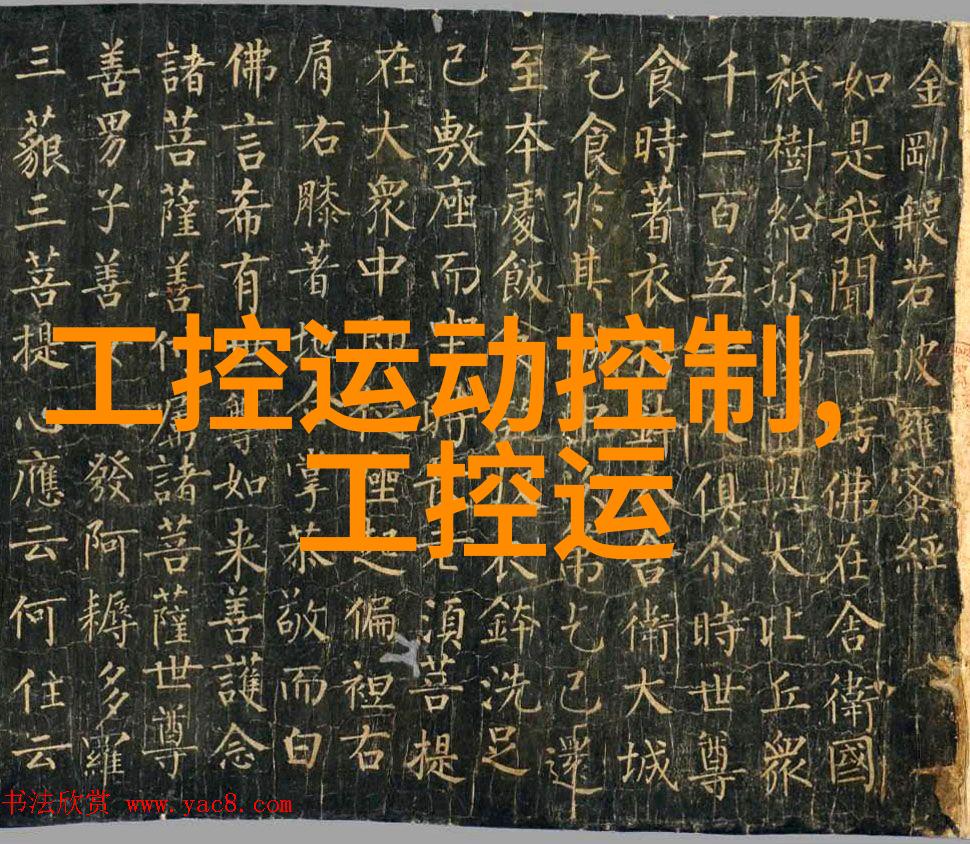 金剛般若波羅蜜經
如是我聞一時佛在舍衛國
祇樹給孤與大比丘眾
千二百五人俱尒時世尊
食時著衣舍衛大城
乞食於其城乞已還
至本處飯衣鉢洗足
已敷座而坐時須菩提
在大眾中座起偏袒右
肩右膝著地掌恭敬而白
佛言希有世尊如来善護念
諸菩薩善付屬諸菩薩世尊
善男子善發阿耨多羅
三藐三菩提心應云何住云
工控运动控制,
工控运
书法欣赏 www.yac8.com